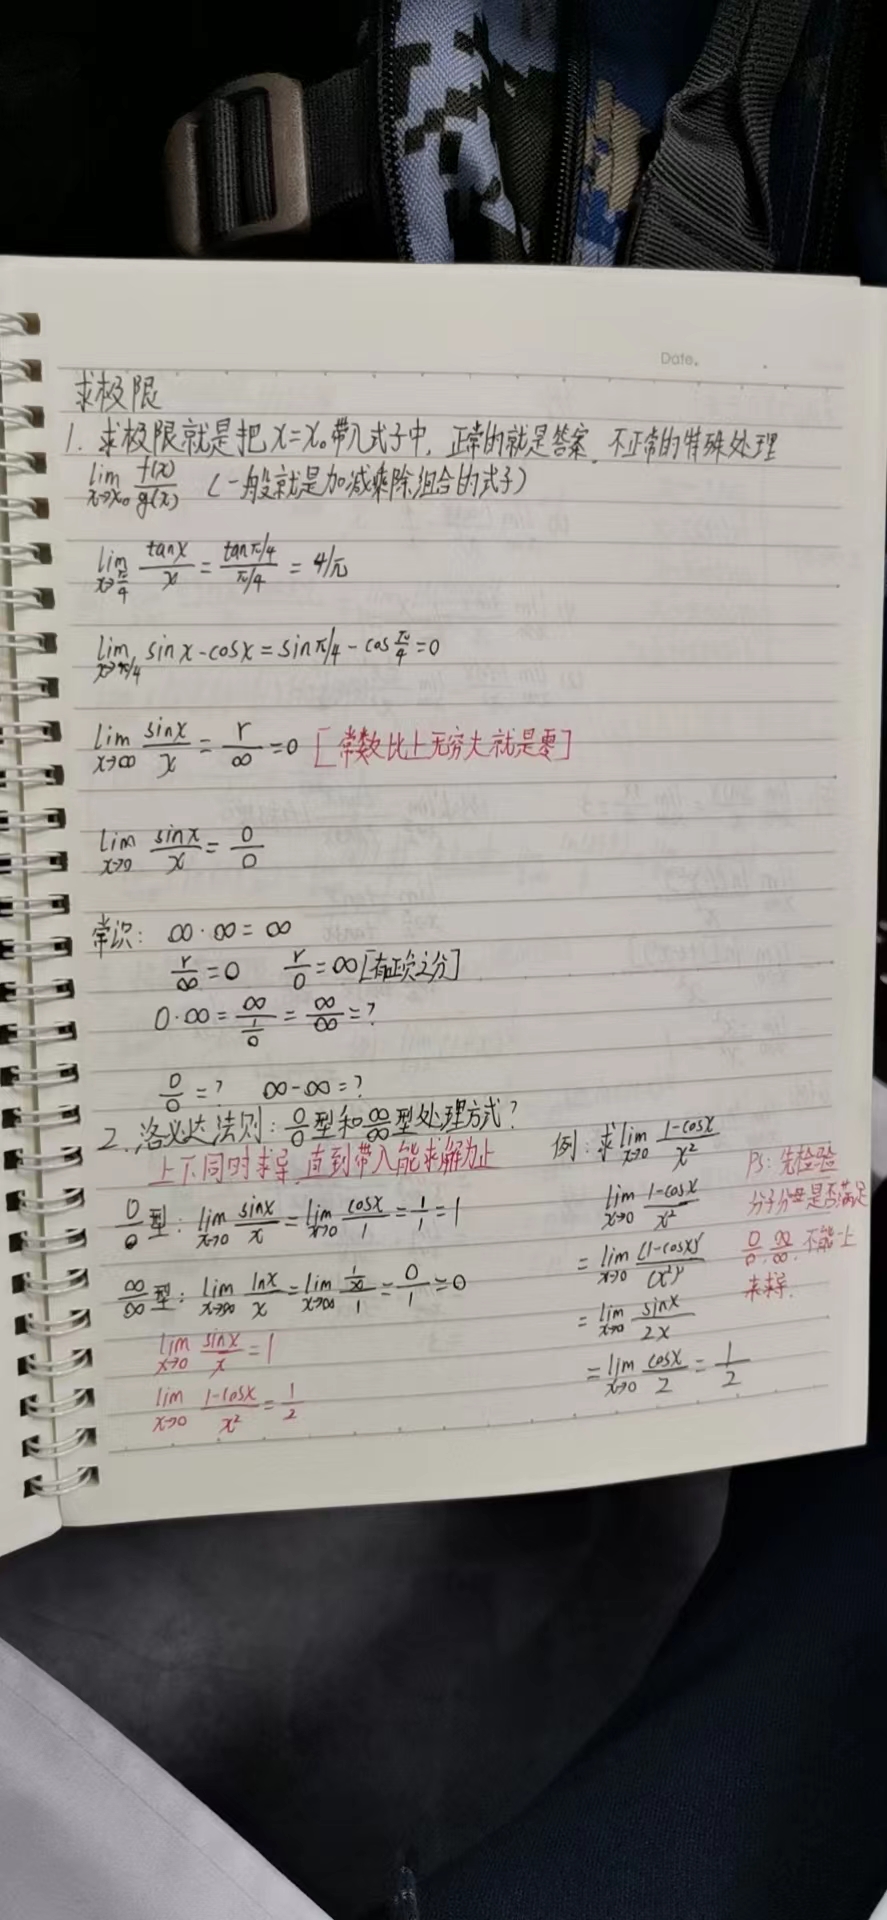 Date.
求极限
1. 求极限就是把x=x₀带入式子中,正常的就是答案,不正常的特殊处理
lim x→x₀ f(x)/g(x) (一般就是加减乘除组合的式子)
lim x→π/4 tanx/x = (tanπ/4)/(π/4) = 4/π
lim x→π/4 sinx-cosx = sinπ/4 - cos π/4 = 0
lim x→∞ sinx/x = r/∞ = 0 [常数比上无穷大就是零]
lim x→0 sinx/x = 0/0
常识: ∞·∞=∞
r/∞=0 r/0=∞[有正负之分]
0·∞ = ∞/(1/0) = ∞/∞ = ?
0/0=? ∞-∞=?
2. 洛必达法则: 0/0型和∞/∞型处理方式?
上下同时求导,直到带入能求解为止
0/0型: lim x→0 sinx/x = lim x→0 cosx/1 = 1/1 = 1
∞/∞型: lim x→∞ lnx/x = lim x→∞ (1/∞)/1 = 0/1 = 0
lim x→0 sinx/x = 1
lim x→0 (1-cosx)/x² = 1/2
例: 求lim x→0 (1-cosx)/x²
lim x→0 (1-cosx)/x²
= lim x→0 (1-cosx)'/(x²)'
= lim x→0 sinx/2x
= lim x→0 cosx/2 = 1/2
Ps: 先检验
分子分母是否满足
0/0, ∞/∞, 不能一上
来求导.